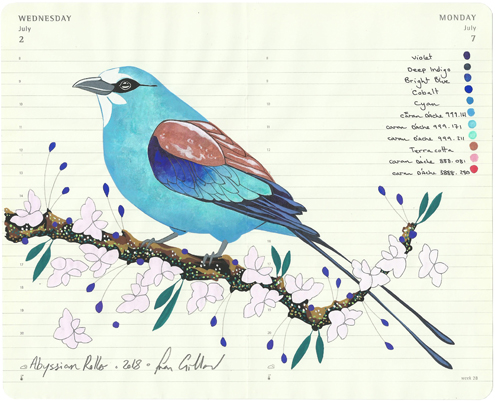 WEDNESDAY
July
2
MONDAY
July
7
violet
Deep Indigo
Bright Blue
Cobalt
Cyan
caran Dâche 999.161
caran Dâche 999.171
caran Dâche 999.211
Terracotta
caran Dâche 888.081
caran Dâche 8888.290
Abyssian Roller . 2018 .
week 28